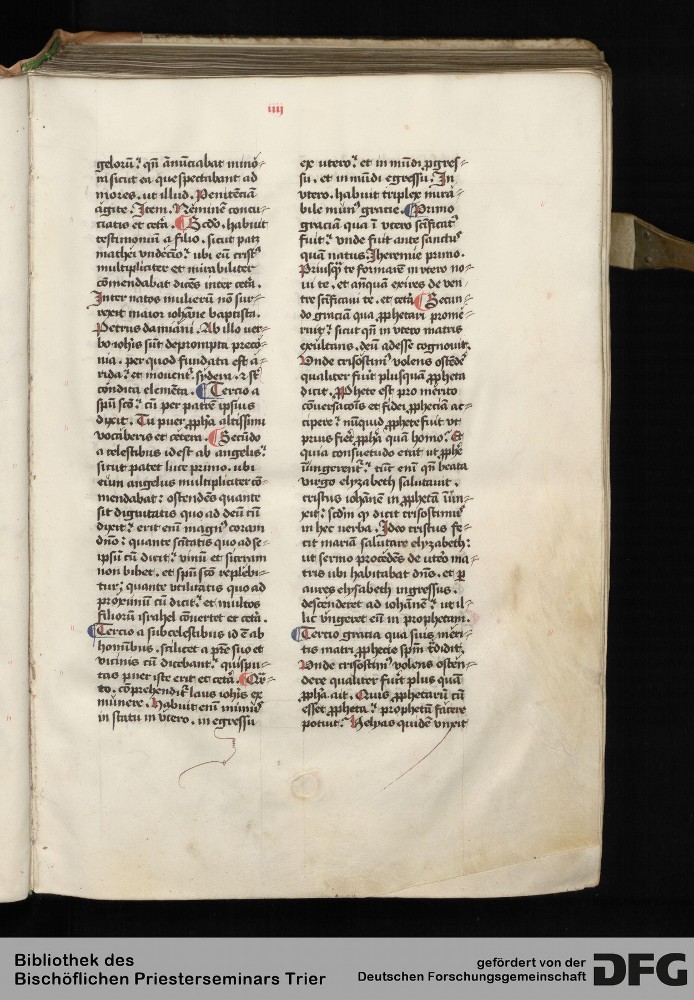 iiij
gelorū. qn̄ ānūciabat mino-
ra sicut ea que spectabant ad
mores. ut illud. Penitēciā
agite. Item. Neminē concu-
ciatis et cetā. Scdō. habuit
testimoniū a filio. sicut patꝫ
mathei vndecīo. ubi eū cristꝰ
multipliciter et mirabiliter
cōmendabat dicēs inter cetā.
Inter natos mulierū nō sur-
rexit maior iohāne baptista.
Petrus damiani. Ab illo ver-
bo iohīs sūt deprompta preco-
nia. per quod fundata est a-
rida. et mouent̄ sydera. ⁊ sūt
condita elemēta. Tercio a
spū scō. cū per patrē ipsius
dixit. Tu puer ꝓpha altissimi
vocaberis et cetera. Secūdo
a celestibus id est ab angelis.
sicut patet luce primo. ubi
eum angelus multipliciter cō-
mendabat: ostendēs quante
sit dignitatis quo ad deū cū
dixit. erit enī magnꝰ coram
dn̄o. quante scītatis quo ad se-
ipsū cū dicit. vinū et siceram
non bibet. et spū scō replebi-
tur. quante vtilitatis quo ad
proximū cū dicit. et multos
filiorū israhel cōuertet et cetā.
Tercio a subcelestibus id ē ab
hominibus. scilicet a pr̄e suo et
vicinis cū dicebant. quis pu-
tas puer iste erit et cetā. Qr̄-
to. cōprehendit̄ laus iohīs ex
munere. Habuit enī munꝰ
in statu in vtero. in egressu
ex vtero. et in mūdi ꝓgres-
su. et in mūdi egressu. In
vtero. habuit triplex mira-
bile munꝰ gracie. Primo
graciam qua ī vtero scīficatꝰ
fuit. vnde fuit ante sanctꝰ
quā natus. Jheremie primo.
Priusqͣ te formarē in vtero no-
ui te. et anquā exires de ven-
tre scīficaui te. et cetā. Secun-
do graciam qua ꝓphetari prome-
ruit. sicut qn̄ in vtero matris
exultans. deū adesse cognouit.
Vnde crisostimꝰ volens ostēdē
qualiter fuit plusquā ꝓpheta
dicit. Prophete est pro mērito
cōuersacōis et fidei ꝓpheciā ac-
cipere. nūquid ꝓphete fuit vt
prius fieꝫ ꝓphā quā homo. Et
quia consuetudo erat ut ꝓphē
ūingerent̄. tūc enī qn̄ beata
virgo elyzabeth salutauit.
cristus iohānē in ꝓphetā ūin-
xit. scdm qꝫ dicit crisostimꝰ
in hec uerba. Ideo cristus fe-
cit mariā salutare elyzabeth:
ut sermo procedēs de utero ma-
tris ubi habitabat dn̄s. et ꝑ
aures elysabeth ingressus.
descenderet ad iohānē. ut il-
lic vngeret eū in prophetam.
Tercio gracia qua suis meri-
tis matri ꝓphecie spm̄ ꝯdidit.
Vnde crisostimꝰ volens osten-
dere qualiter fuit plus quā
ꝓphā ait. Quis ꝓphetarū cū
esset ꝓpheta. prophetā facere
potuit. Helyas quidē vnxit
Bibliothek des
Bischöflichen Priesterseminars Trier
gefördert von der
Deutschen Forschungsgemeinschaft
DFG